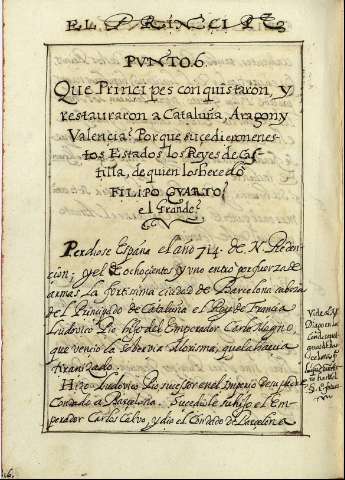 EL PRINCIPE
PUNTO 6.
Que Principes conquistaron, y
restauraron a Cataluña, Aragon y
Valencia? Porque sucedieron en es-
tos Estados los Reyes de Cas-
tilla, de quien los heredó
FILIPO QUARTO
el Grande?
Perdiose España el año 714. de N. Reden-
cion; y el de ochocientos y uno entró por fuerza de
armas la fortissima ciudad de Barcelona cabeza
del Principado de Cataluña el Rey de Francia
Ludovico Pio hijo del Emperador Carlo Magno,
que venció la sobervia Morisma, que la havia
tiranizado.
Hizo Ludovico Pio sucessor en el Imperio de su padre
Condado a Barcelona. Sucediole su hijo el Em-
perador Carlos Calvo, y dio el Condado de Barcelona